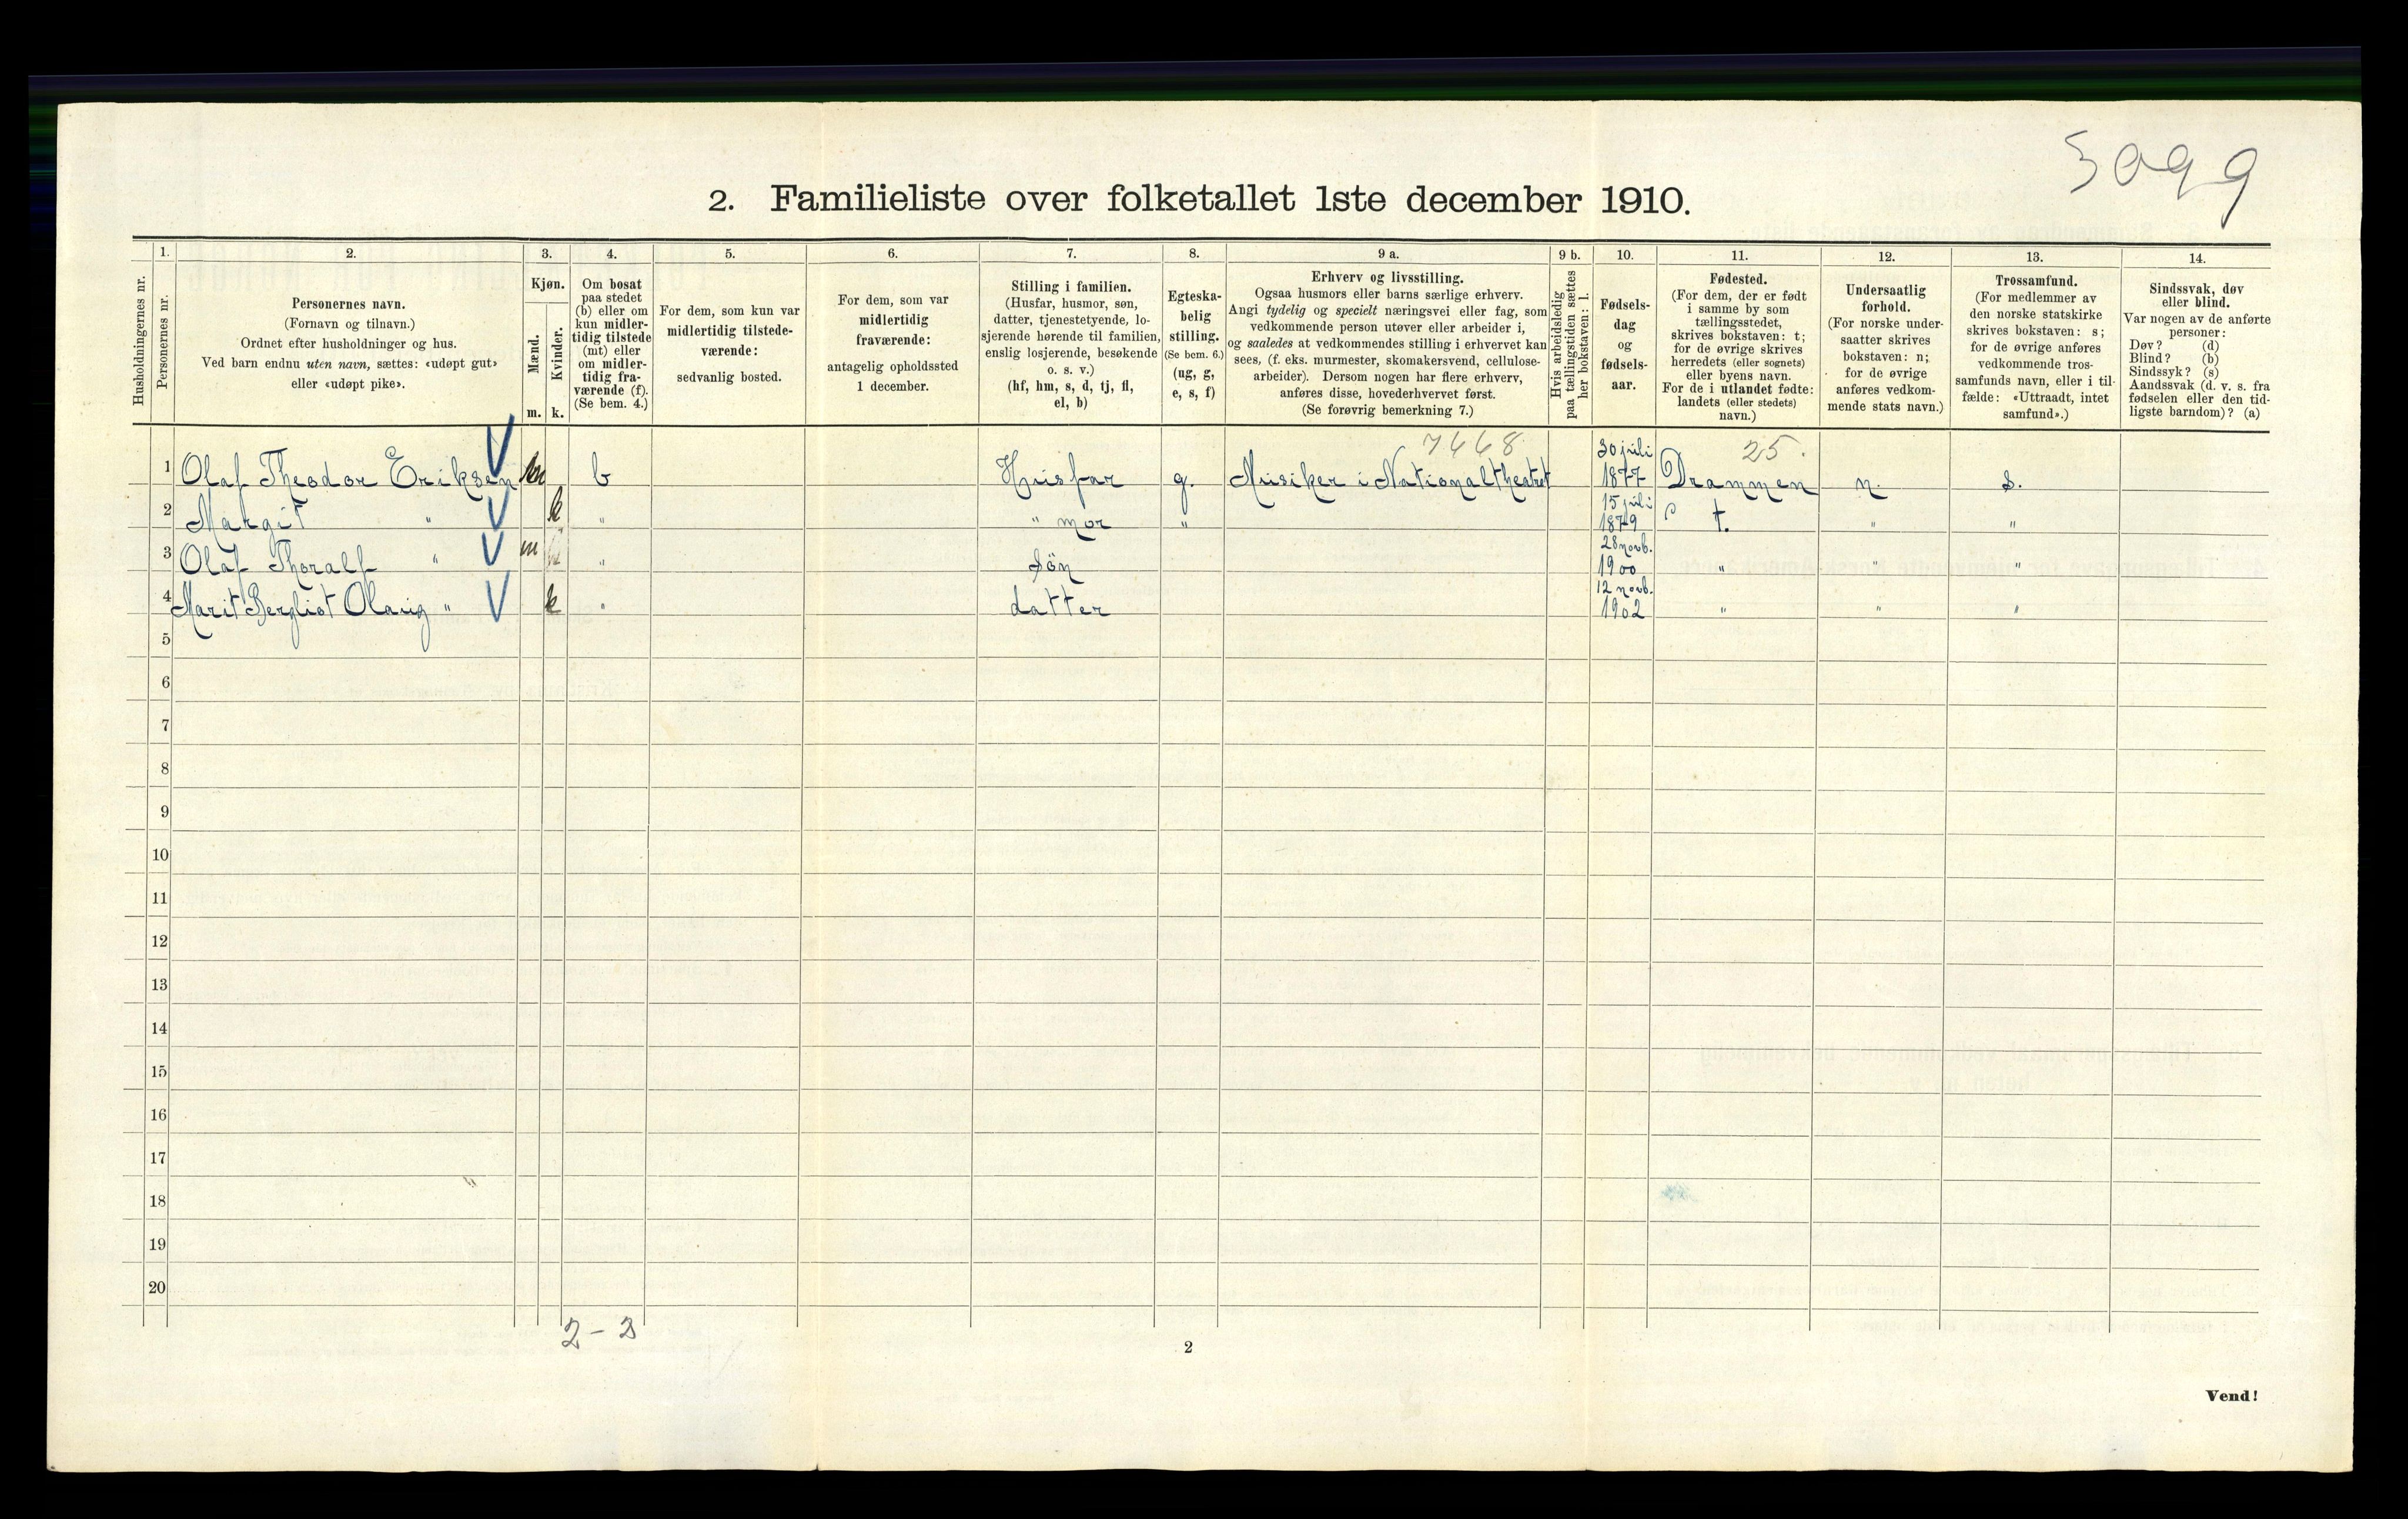 3099
2. Familieliste over folketallet 1ste december 1910.
Husholdningernes nr.
1.
Personernes nr.
2.
Personernes navn.
(Fornavn og tilnavn.)
Ordnet efter husholdninger og hus.
Ved barn endnu uten navn, sættes: «udøpt gut»
eller «udøpt pike».
3.
Kjøn.
Mænd.
Kvinder.
m. k.
4.
Om bosat
paa stedet
(b) eller om
kun midler-
tidig tilstede
(mt) eller
om midler-
tidig fra-
værende (f).
(Se bem. 4.)
5.
For dem, som kun var
midlertidig tilstede-
værende:
sedvanlig bosted.
6.
For dem, som var
midlertidig
fraværende:
antagelig opholdssted
1 december.
7.
Stilling i familien.
(Husfar, husmor, søn,
datter, tjenestetyende, lo-
sjerende hørende til familien,
enslig losjerende, besøkende
o. s. v.)
(hf, hm, s, d, tj, fl,
el, b)
8.
Egteska-
belig
stilling.
(Se bem. 6.)
(ug, g,
e, s, f)
9 a.
Erhverv og livsstilling.
Ogsaa husmors eller barns særlige erhverv.
Angi tydelig og specielt næringsvei eller fag, som
vedkommende person utøver eller arbeider i,
og saaledes at vedkommendes stilling i erhvervet kan
sees, (f. eks. murmester, skomakersvend, cellulose-
arbeider). Dersom nogen har flere erhverv,
anføres disse, hovederhvervet først.
(Se forøvrig bemerkning 7.)
9 b.
Hvis arbeidsledig
paa tællingstiden sættes
her bokstaven: l.
10.
Fødsels-
dag
og
fødsels-
aar.
11.
Fødested.
(For dem, der er født
i samme by som
tællingsstedet,
skrives bokstaven: t;
for de øvrige skrives
herredets (eller sognets)
eller byens navn.
For de i utlandet fødte:
landets (eller stedets)
navn.)
12.
Undersaatlig
forhold.
(For norske under-
saatter skrives
bokstaven: n;
for de øvrige
anføres vedkom-
mende stats navn.)
13.
Trossamfund.
(For medlemmer av
den norske statskirke
skrives bokstaven: s;
for de øvrige anføres
vedkommende tros-
samfunds navn, eller i til-
fælde: «Uttraadt, intet
samfund».)
14.
Sindssvak, døv
eller blind.
Var nogen av de anførte
personer:
Døv? (d)
Blind? (b)
Sindssyk? (s)
Aandssvak (d. v. s. fra
fødselen eller den tid-
ligste barndom)? (a)
7468 25.
1 Olaf Theodor Eriksen m b Husfar g. Musiker i Nationaltheatret 30 juli 1877 Drammen n. s.
2 Margit " k " " mor " 15 juli 1879 t. " "
3 Olaf Thoralf " m " Søn 28 novb. 1900 " " "
4 Marit Bergliot Olaug " k " datter 12 novb. 1902 " " "
5
6
7
8
9
10
11
12
13
14
15
16
17
18
19
20
2 - 2
2
Vend!